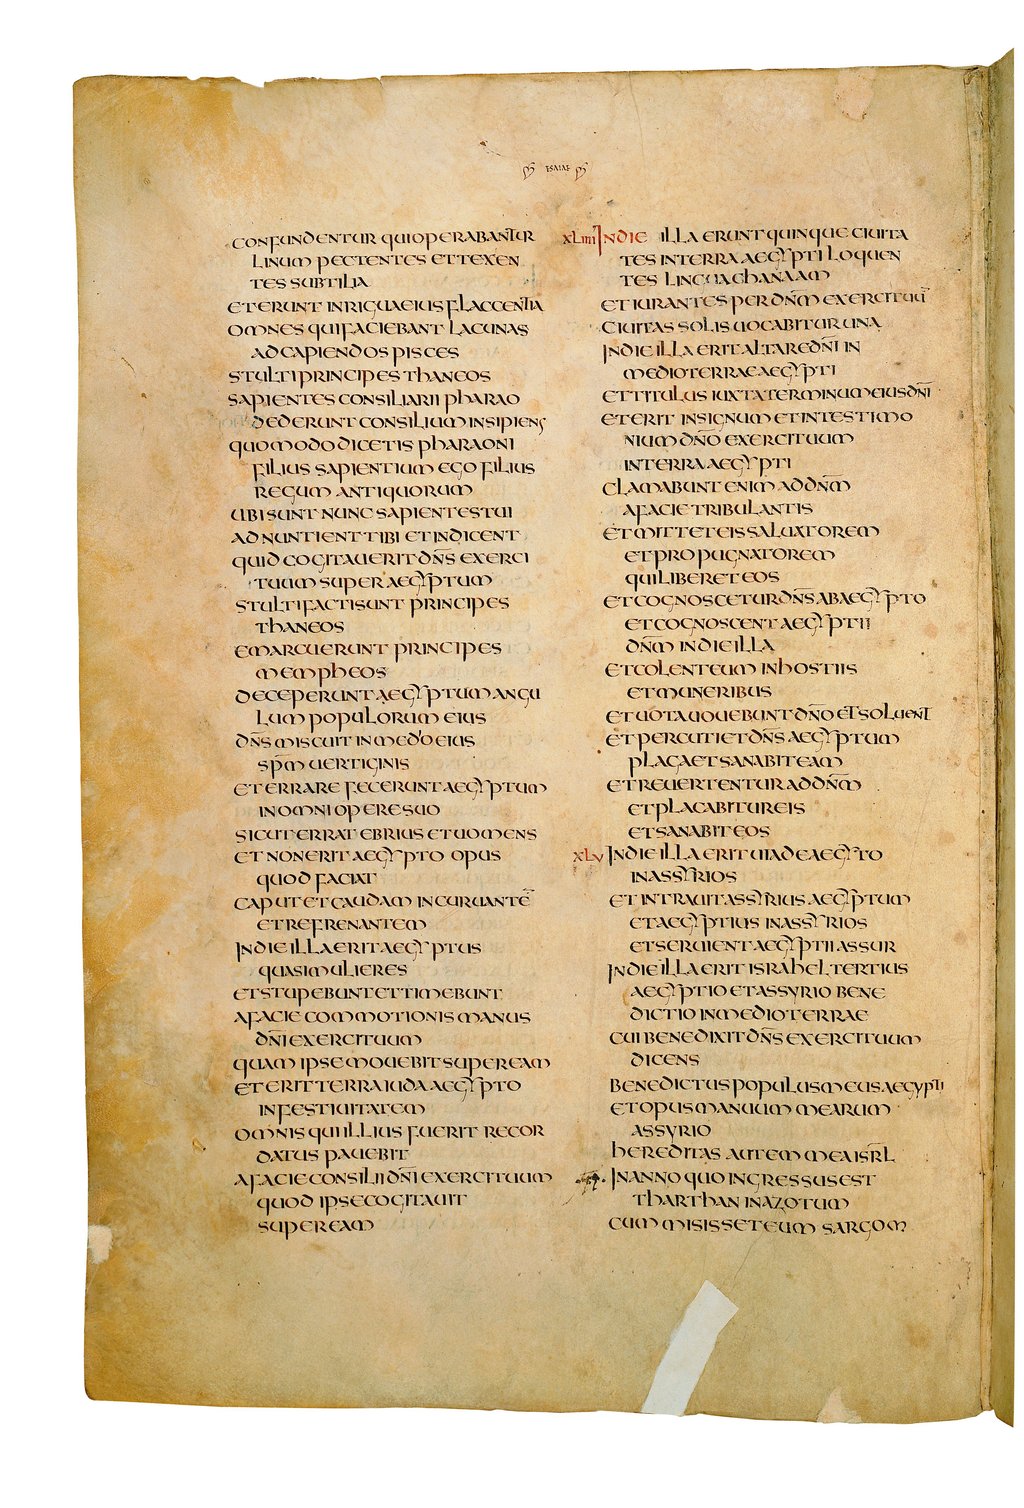 ESAIAE
CONFUNDENTUR QUI OPERABANTUR
LINUM PECTENTES ET TEXEN
TES SUBTILIA
ET ERUNT INRIGUA EIUS FLACCENTIA
OMNES QUI FACIEBANT LACUNAS
AD CAPIENDOS PISCES
STULTI PRINCIPES THANEOS
SAPIENTES CONSILIARII PHARAO
DEDERUNT CONSILIUM INSIPIENS
QUOMODO DICETIS PHARAONI
FILIUS SAPIENTIUM EGO FILIUS
REGUM ANTIQUORUM
UBI SUNT NUNC SAPIENTES TUI
ADNUNTIENT TIBI ET INDICENT
QUID COGITAUERIT DN̄S EXERCI
TUUM SUPER AEGYPTUM
STULTI FACTI SUNT PRINCIPES
THANEOS
EMARCUERUNT PRINCIPES
MEMPHEOS
DECEPERUNT AEGYPTUM ANGU
LUM POPULORUM EIUS
DN̄S MISCUIT IN MEDIO EIUS
SPM̄ UERTIGINIS
ET ERRARE FECERUNT AEGYPTUM
IN OMNI OPERE SUO
SICUT ERRAT EBRIUS ET UOMENS
ET NON ERIT AEGYPTO OPUS
QUOD FACIAT
CAPUT ET CAUDAM INCURUANTĒ
ET REFRENANTEM
IN DIE ILLA ERIT AEGYPTUS
QUASI MULIERES
ET STUPEBUNT ET TIMEBUNT
A FACIE COMMOTIONIS MANUS
DN̄I EXERCITUUM
QUAM IPSE MOUEBIT SUPER EAM
ET ERIT TERRA IUDA AEGYPTO
IN FESTIUITATEM
OMNIS QUI ILLIUS FUERIT RECOR
DATUS PAUEBIT
A FACIE CONSILII DN̄I EXERCITUUM
QUOD IPSE COGITAUIT
SUPER EAM
XLIIII IN DIE ILLA ERUNT QUINQUE CIUITA
TES IN TERRA AEGYPTI LOQUEN
TES LINGUA CHANAAM
ET IURANTES PER DNM̄ EXERCITUŪ
CIUITAS SOLIS UOCABITUR UNA
IN DIE ILLA ERIT ALTARE DN̄I IN
MEDIO TERRAE AEGYPTI
ET TITULUS IUXTA TERMINUM EIUS DN̄I
ET ERIT IN SIGNUM ET IN TESTIMO
NIUM DN̄O EXERCITUUM
IN TERRA AEGYPTI
CLAMABUNT ENIM AD DNM̄
A FACIE TRIBULANTIS
ET MITTET EIS SALUATOREM
ET PROPUGNATOREM
QUI LIBERET EOS
ET COGNOSCETUR DN̄S AB AEGYPTO
ET COGNOSCENT AEGYPTII
DNM̄ IN DIE ILLA
ET COLENT EUM IN HOSTIIS
ET MUNERIBUS
ET UOTA UOUEBUNT DN̄O ET SOLUENT
ET PERCUTIET DN̄S AEGYPTUM
PLAGA ET SANABIT EAM
ET REUERTENTUR AD DNM̄
ET PLACABITUR EIS
ET SANABIT EOS
XLV IN DIE ILLA ERIT UIA DE AEGYPTO
IN ASSYRIOS
ET INTRAUIT ASSYRIUS AEGYPTUM
ET AEGYPTIUS IN ASSYRIOS
ET SERUIENT AEGYPTII ASSUR
IN DIE ILLA ERIT ISRAHEL TERTIUS
AEGYPTIO ET ASSYRIO BENE
DICTIO IN MEDIO TERRAE
CUI BENEDIXIT DN̄S EXERCITUUM
DICENS
BENEDICTUS POPULUS MEUS AEGYPTI
ET OPUS MANUUM MEARUM
ASSYRIO
HEREDITAS AUTEM MEA ISRL̄
IN ANNO QUO INGRESSUS EST
THARTHAN IN AZOTUM
CUM MISISSET EUM SARGOM